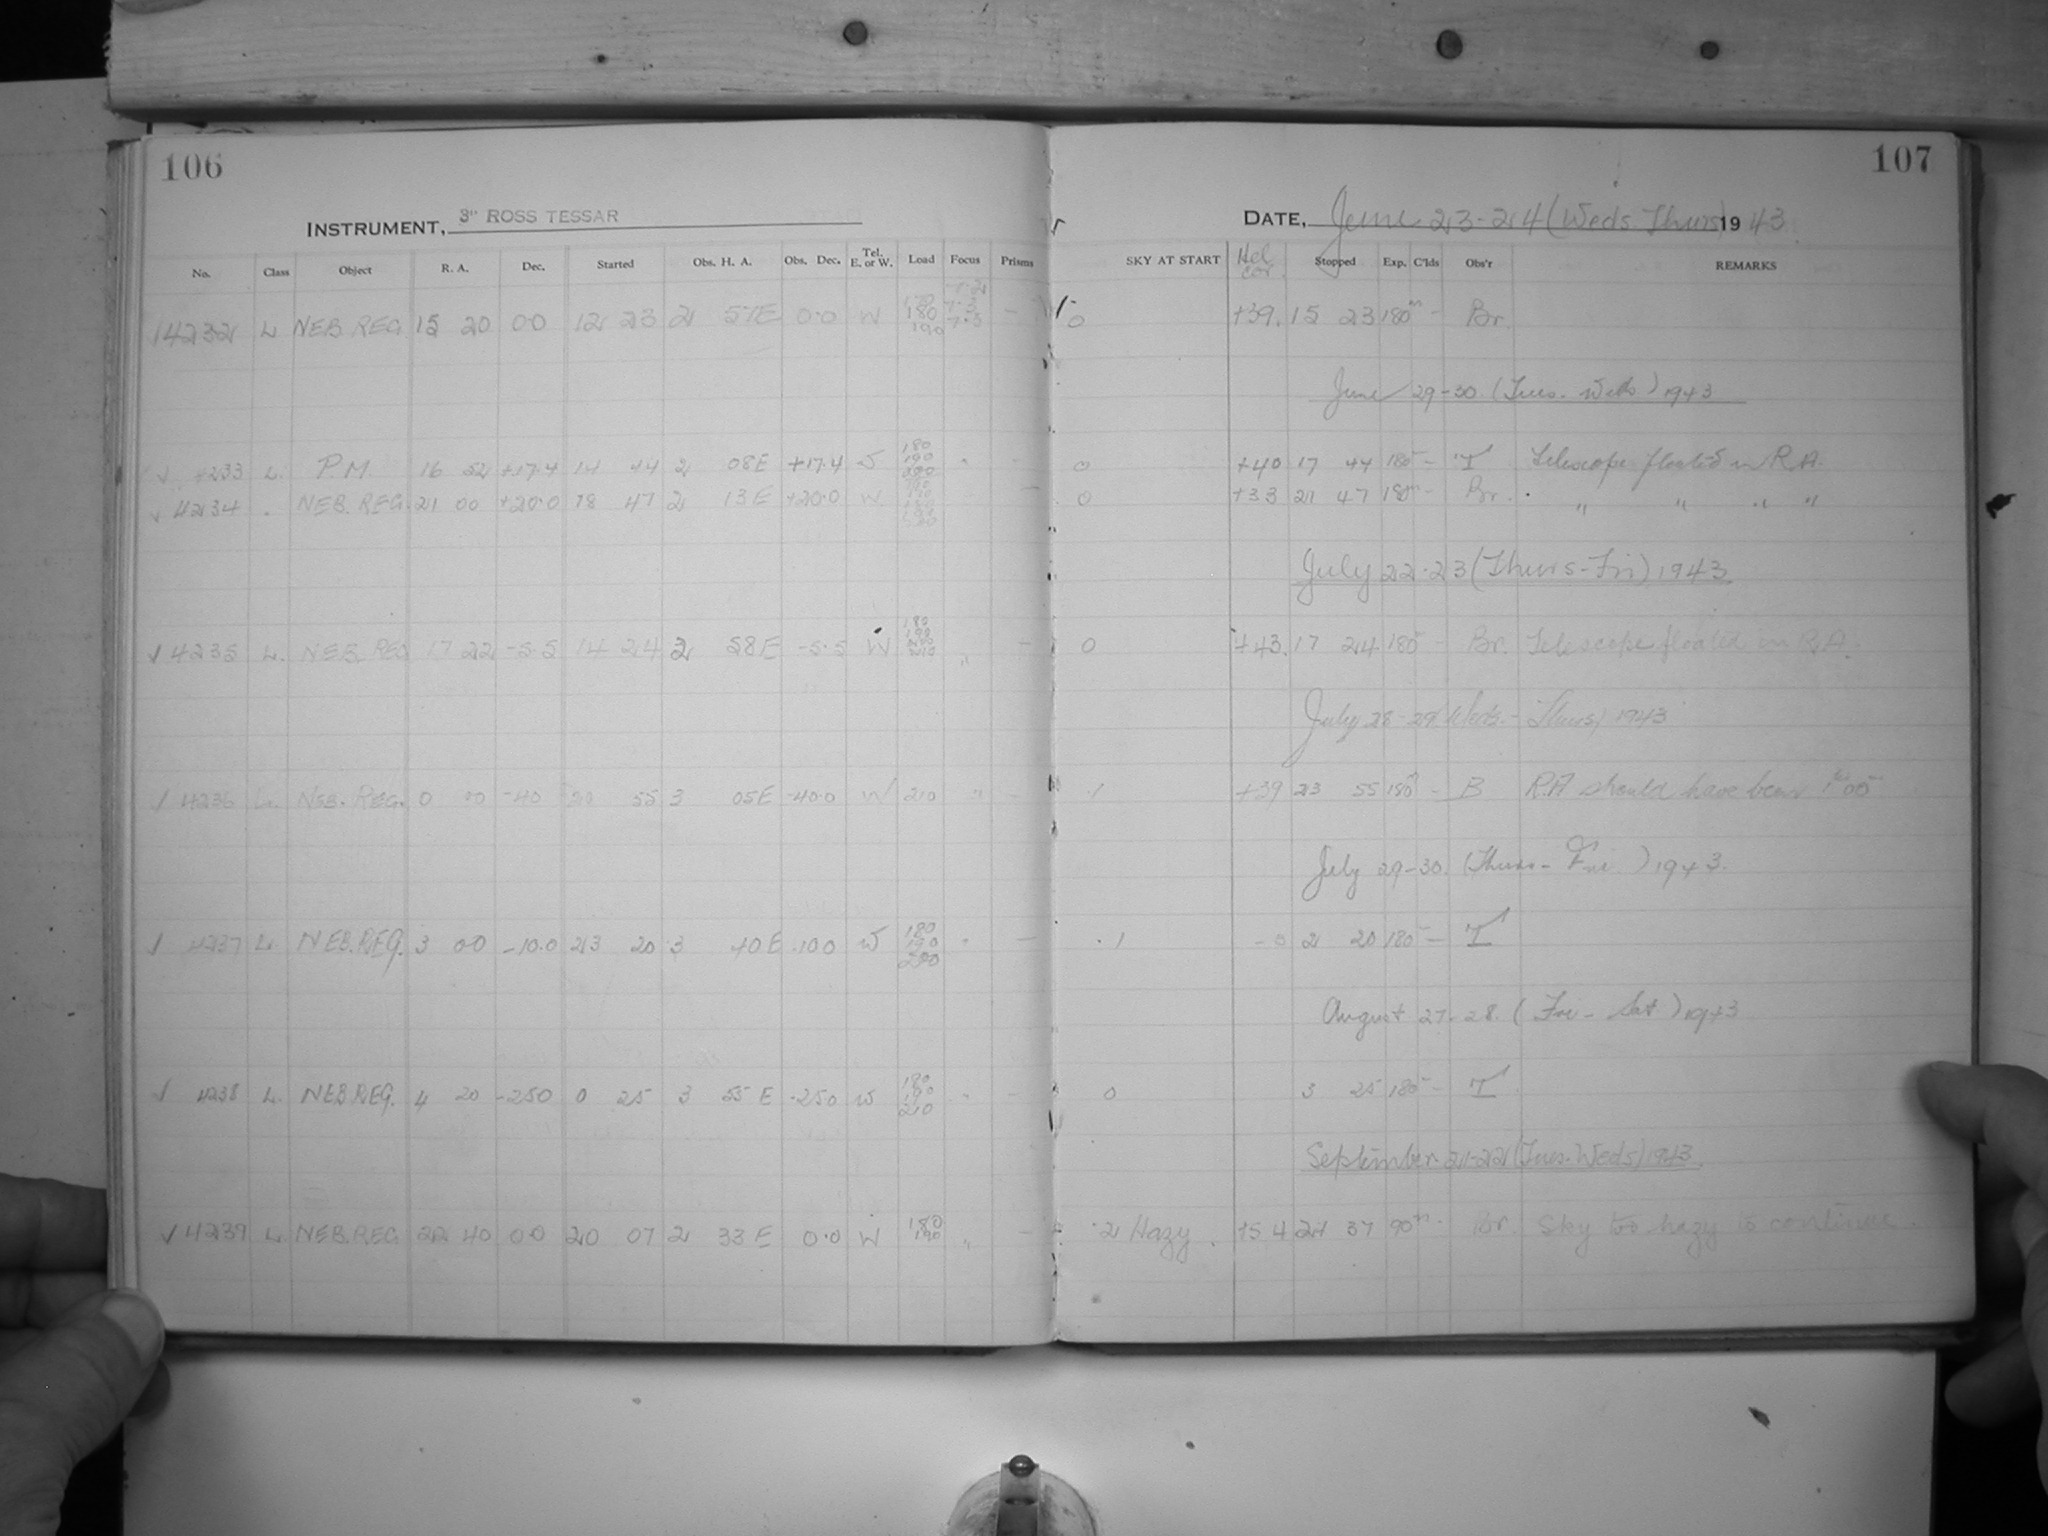 106
INSTRUMENT, 3" ROSS TESSAR
No. Class Object R. A. Dec. Started Obs. H. A. Obs. Dec. Tel. E. or W. Load Focus Prisms
14232 L NEB. REG. 15 20 00 12 23 2 57E 0.0 W 180 190 7.3 -
4233 L. P.M. 16 52 +17.4 14 44 2 08E +17.4 W 180 190 200 " -
✓ 4234 . NEB. REG. 21 00 +20.0 18 47 2 13 E +20.0 W -
✓ 4235 L. NEB. REG 17 22 -5.5 14 24 2 58E -5.5 W 180 190 " -
✓ 4236 L. NEB. REG. 0 00 -40 20 55 3 05E -40.0 W 210 " -
✓ 4237 L. NEB. REG. 3 00 -10.0 23 20 3 40E -10.0 W 180 190 200 " -
✓ 4238 L. NEB REG. 4 20 -250 0 25 3 55 E -25.0 W 180 190 210 " -
✓ 4239 L NEB. REG 22 40 00 20 07 2 33 E 0.0 W 180 190 " -
107
DATE, June 23-24 (Weds. Thurs) 1943
SKY AT START Hel cor. Stopped Exp. C'lds Obs'r REMARKS
0 +39. 15 23 180m - Br.
June 29-30. (Tues. Weds.) 1943
0 +40 17 44 180m - T Telescope floated in R.A.
0 +33 21 47 180m - Br. " " " "
July 22-23 (Thurs-Fri) 1943
0 +43. 17 24 180m - Br. Telescope floated in R.A.
July 28-29 Weds. - Thurs) 1943
1 +39 23 55 180m - B R.A should have been 1h 00m
July 29-30. (Thurs - Fri.) 1943.
1 -0 2 20 180m - T
August 27-28. (Fri - Sat) 1943
0 3 25 180m - T
September 21-22 (Tues. Weds) 1943.
2 Hazy. +54 21 37 90m - Br. Sky too hazy to continue.